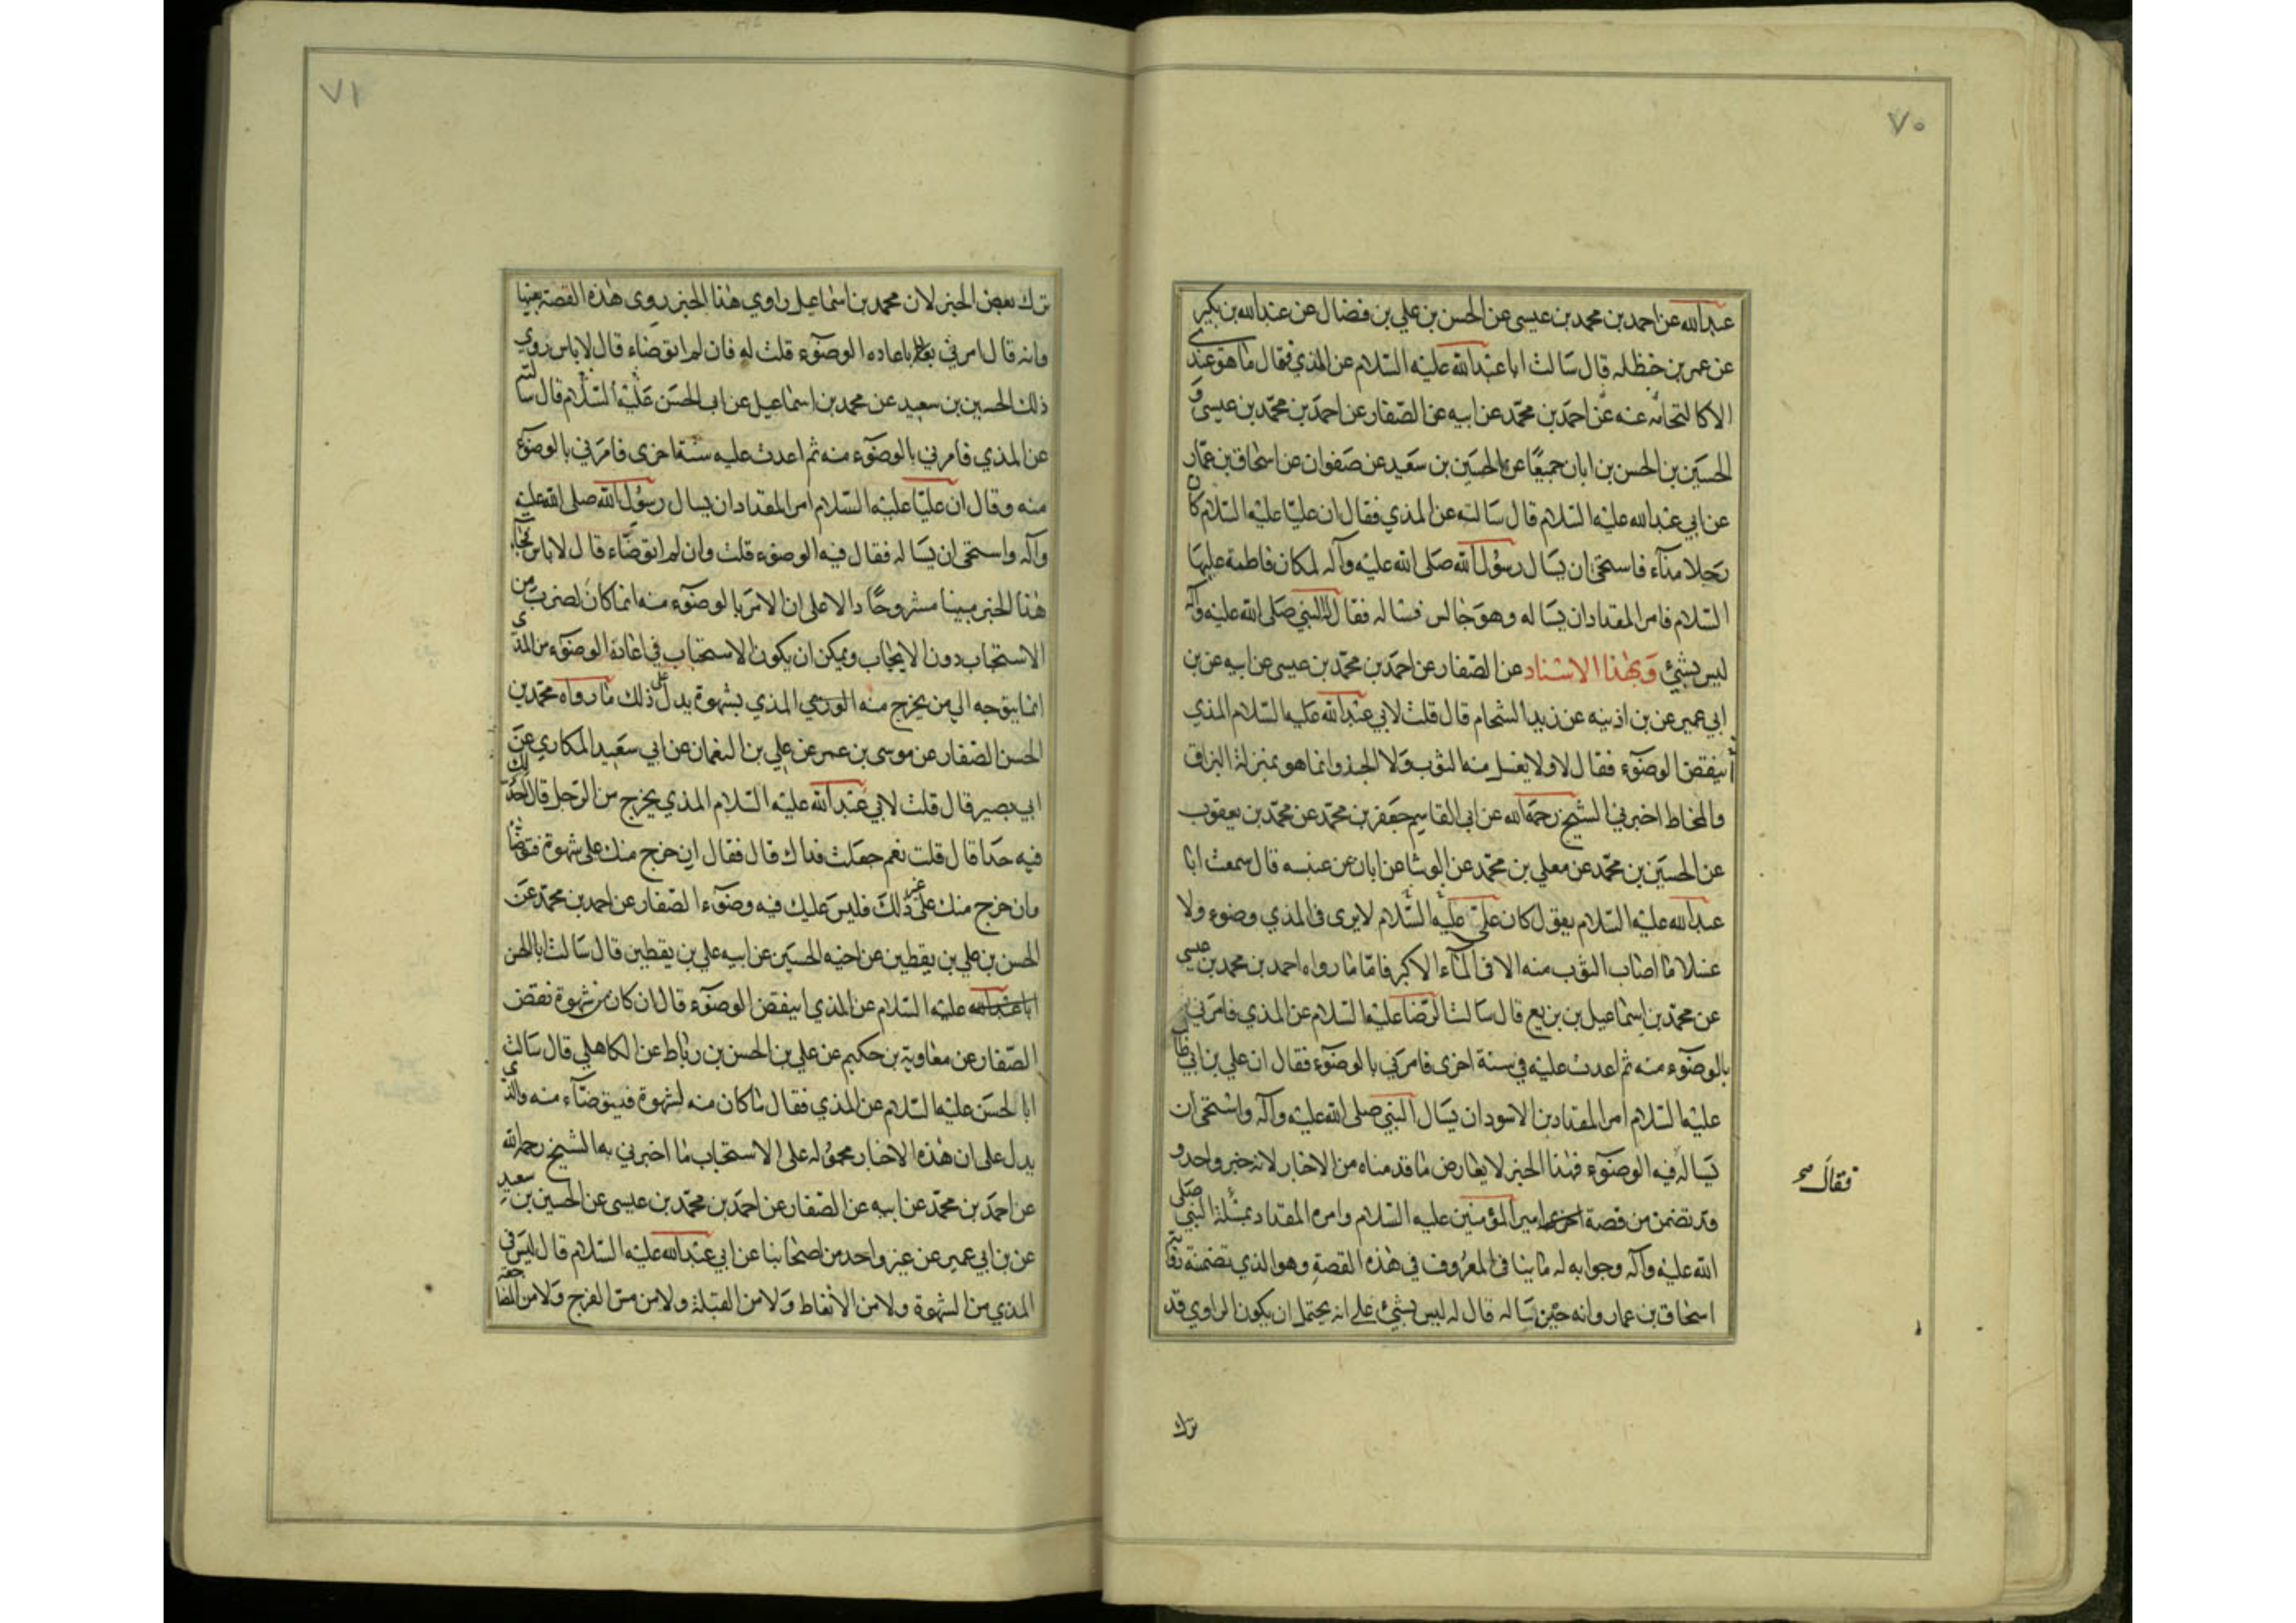 ٧٠
عبدالله عن احمد بن محمد بن عيسى عن الحسن بن علي بن فضال عن عبدالله بن بكير
عن عمر بن حنظله قال سالت ابا عبدالله عليه السلام عن المذي فقال ما هو عندي
الا كالنخامه عنه عن احمد بن محمد عن ابيه عن الصفار عن احمد بن محمد بن عيسى و
الحسين بن الحسن بن ابان جميعا عن الحسين بن سعيد عن صفوان عن اسحاق بن عمار
عن ابي عبدالله عليه السلام قال سالته عن المذي فقال ان عليا عليه السلام كان
رجلا مذآء فاستحى ان يسال رسول الله صلى الله عليه وآله لمكان فاطمة عليها
السلام فامر المقداد ان يساله وهو جالس فساله فقال له النبي صلى الله عليه وآله
ليس بشئ وبهذا الاسناد عن الصفار عن احمد بن محمد بن عيسى عن ابيه عن بن
ابي عمير عن بن اذينه عن زيد الشحام قال قلت لابي عبدالله عليه السلام المذي
أينقض الوضوء فقال لا ولا يغسل منه الثوب ولا الجسد وانما هو بمنزلة البزاق
والمخاط اخبرني الشيخ رحمه الله عن ابي القاسم جعفر بن محمد عن محمد بن يعقوب
عن الحسين بن محمد عن معلي بن محمد عن الوشا عن ابان عن عنبسه قال سمعت ابا
عبدالله عليه السلام يقول كان علي عليه السلام لا يرى في المذي وضوء ولا
غسلا ما اصاب الثوب منه الا في المآء الاكبر فاما ما رواه احمد بن محمد بن عيسى
عن محمد بن اسماعيل بن بزيع قال سالت الرضا عليه السلام عن المذي فامرني
بالوضوء منه ثم اعدت عليه في سنة اخرى فامرني بالوضوء فقال ان علي بن ابي طالب
عليه السلام امر المقداد بن الاسود ان يسال النبي صلى الله عليه وآله واستحى ان
يساله فيه الوضوء فهذا الخبر لا يعارض ما قدمناه من الاخبار لانه خبر واحد و
فقال صح
قد تضمن من قصة امير المؤمنين عليه السلام وامره المقداد بمسئلة النبي صلى
الله عليه وآله وجوابه له ما ينافي المعروف في هذه القصة وهو الذي تضمنته رواية
اسحاق بن عمار وانه حين ساله قال له ليس بشئ على انه يحتمل ان يكون الراوي قد
ترك
٧١
ترك بعض الخبر لان محمد بن اسماعيل راوي هذا الخبر روى هذه القصة بعينها
وانه قال امرني باعاده الوضوء قلت له فان لم اتوضاء قال لا باس روي
ذلك الحسين بن سعيد عن محمد بن اسماعيل عن ابي الحسن عليه السلام قال سالته
عن المذي فامرني بالوضوء منه ثم اعدت عليه سنة اخرى فامرني بالوضوء
منه وقال ان عليا عليه السلام امر المقداد ان يسال رسول الله صلى الله عليه
وآله واستحى ان يساله فقال فيه الوضوء قلت وان لم اتوضاء قال لا باس فجاء
هذا الخبر مبينا مشروحا دالا على ان الامر بالوضوء منه انما كان لضرب من
الاستحباب دون الايجاب ويمكن ان يكون الاستحباب في اعادة الوضوء من المذي
انما يتوجه الى من يخرج منه المذي بشهوة يدل على ذلك ما رواه محمد بن
الحسن الصفار عن موسى بن عمر عن علي بن النعمان عن ابي سعيد المكاري عن
ابي بصير قال قلت لابي عبدالله عليه السلام المذي يخرج من الرجل قال احد لك
فيه حدا قال قلت نعم جعلت فداك قال فقال ان خرج منك على شهوة فتوضا
وان خرج منك على غير ذلك فليس عليك فيه وضوء الصفار عن احمد بن محمد عن
الحسن بن علي بن يقطين عن اخيه الحسين عن ابيه علي بن يقطين قال سالت ابا الحسن
ابا عبدالله عليه السلام عن المذي اينقض الوضوء قال ان كان من شهوة نقض
الصفار عن معاوية بن حكيم عن علي بن الحسن بن رباط عن الكاهلي قال سالت
ابا الحسن عليه السلام عن المذي فقال ما كان منه لشهوة فيتوضاء منه والذي
يدل على ان هذه الاخبار محموله على الاستحباب ما اخبرني به الشيخ رحمه الله
عن احمد بن محمد عن ابيه عن الصفار عن احمد بن محمد بن عيسى عن الحسين بن سعيد
عن بن ابي عمير عن غير واحد من اصحابنا عن ابي عبدالله عليه السلام قال ليس في
المذي من الشهوة ولا من الانعاظ ولا من القبلة ولا من مس الفرج ولا من المضاجعه